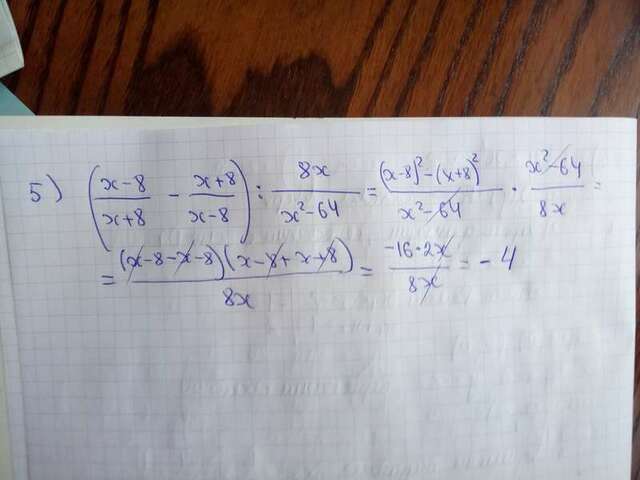 5) ( \frac{x-8}{x+8} - \frac{x+8}{x-8} ) : \frac{8x}{x^2-64} = \frac{(x-8)^2-(x+8)^2}{x^2-64} · \frac{x^2-64}{8x} =
= \frac{(x-8-x-8)(x-8+x+8)}{8x} = \frac{-16·2x}{8x} = -4